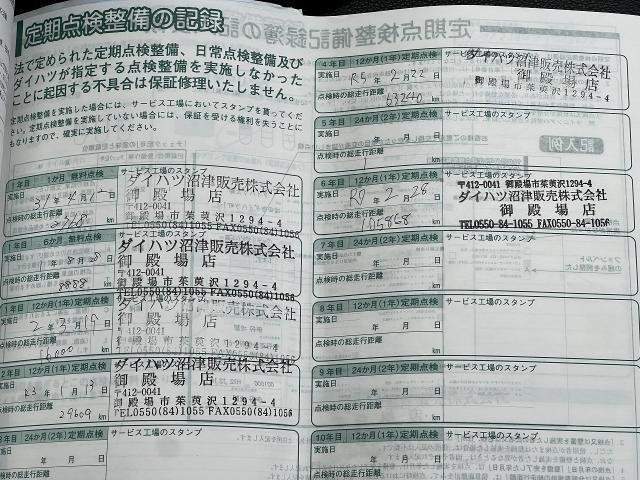 定期点検整備の記録
法で定められた定期点検整備、日常点検整備及び
ダイハツが指定する点検整備を実施しなかった
ことに起因する不具合は保証修理いたしません。
定期点検整備を実施した場合には、サービス工場においてスタンプを貰ってくだ
さい。定期点検整備を実施していない場合には、保証を受ける権利を失うことに
もなりますので、確実に実施してください。
1年目 1か月 無料点検 サービス工場のスタンプ
実施日 31年4月12日
点検時の総走行距離 km
ダイハツ沼津販売株式会社
御殿場店
〒412-0041
御殿場市茱萸沢1294-4
TEL0550(84)1055 FAX0550(84)1056
1年目 6か月 無料点検 サービス工場のスタンプ
実施日 年8月8日
点検時の総走行距離 8888 km
ダイハツ沼津販売株式会社
御殿場店
〒412-0041
御殿場市茱萸沢1294-4
TEL0550(84)1055 FAX0550(84)1056
1年目 12か月(1年)定期点検 サービス工場のスタンプ
実施日 2年3月19日
点検時の総走行距離 16000 km
ダイハツ沼津販売株式会社
御殿場店
〒412-0041
御殿場市茱萸沢1294-4
2年目 12か月(1年)定期点検 サービス工場のスタンプ
実施日 R3年1月19日
点検時の総走行距離 29609 km
ダイハツ沼津販売株式会社
御殿場店
〒412-0041
御殿場市茱萸沢1294-4
TEL0550(84)1055 FAX0550(84)1056
3年目 24か月(2年)定期点検 サービス工場のスタンプ
実施日 年 月 日
点検時の総走行距離 km
4年目 12か月(1年)定期点検 サービス工場のスタンプ
実施日 R5年2月22日
点検時の総走行距離 63240 km
ダイハツ沼津販売株式会社
御殿場店
御殿場市茱萸沢1294-4
5年目 24か月(2年)定期点検 サービス工場のスタンプ
実施日 年 月 日
点検時の総走行距離 km
6年目 12か月(1年)定期点検 サービス工場のスタンプ
実施日 R7年2月28日
点検時の総走行距離 105868 km
〒412-0041 御殿場市茱萸沢1294-4
ダイハツ沼津販売株式会社
御殿場店
TEL0550-84-1055 FAX0550-84-1056
7年目 24か月(2年)定期点検 サービス工場のスタンプ
実施日 年 月 日
点検時の総走行距離 km
8年目 12か月(1年)定期点検 サービス工場のスタンプ
実施日 年 月 日
点検時の総走行距離 km
9年目 24か月(2年)定期点検 サービス工場のスタンプ
実施日 年 月 日
点検時の総走行距離 km
10年目 12か月(1年)定期点検 サービス工場のスタンプ
実施日 年 月 日
点検時の総走行距離 km